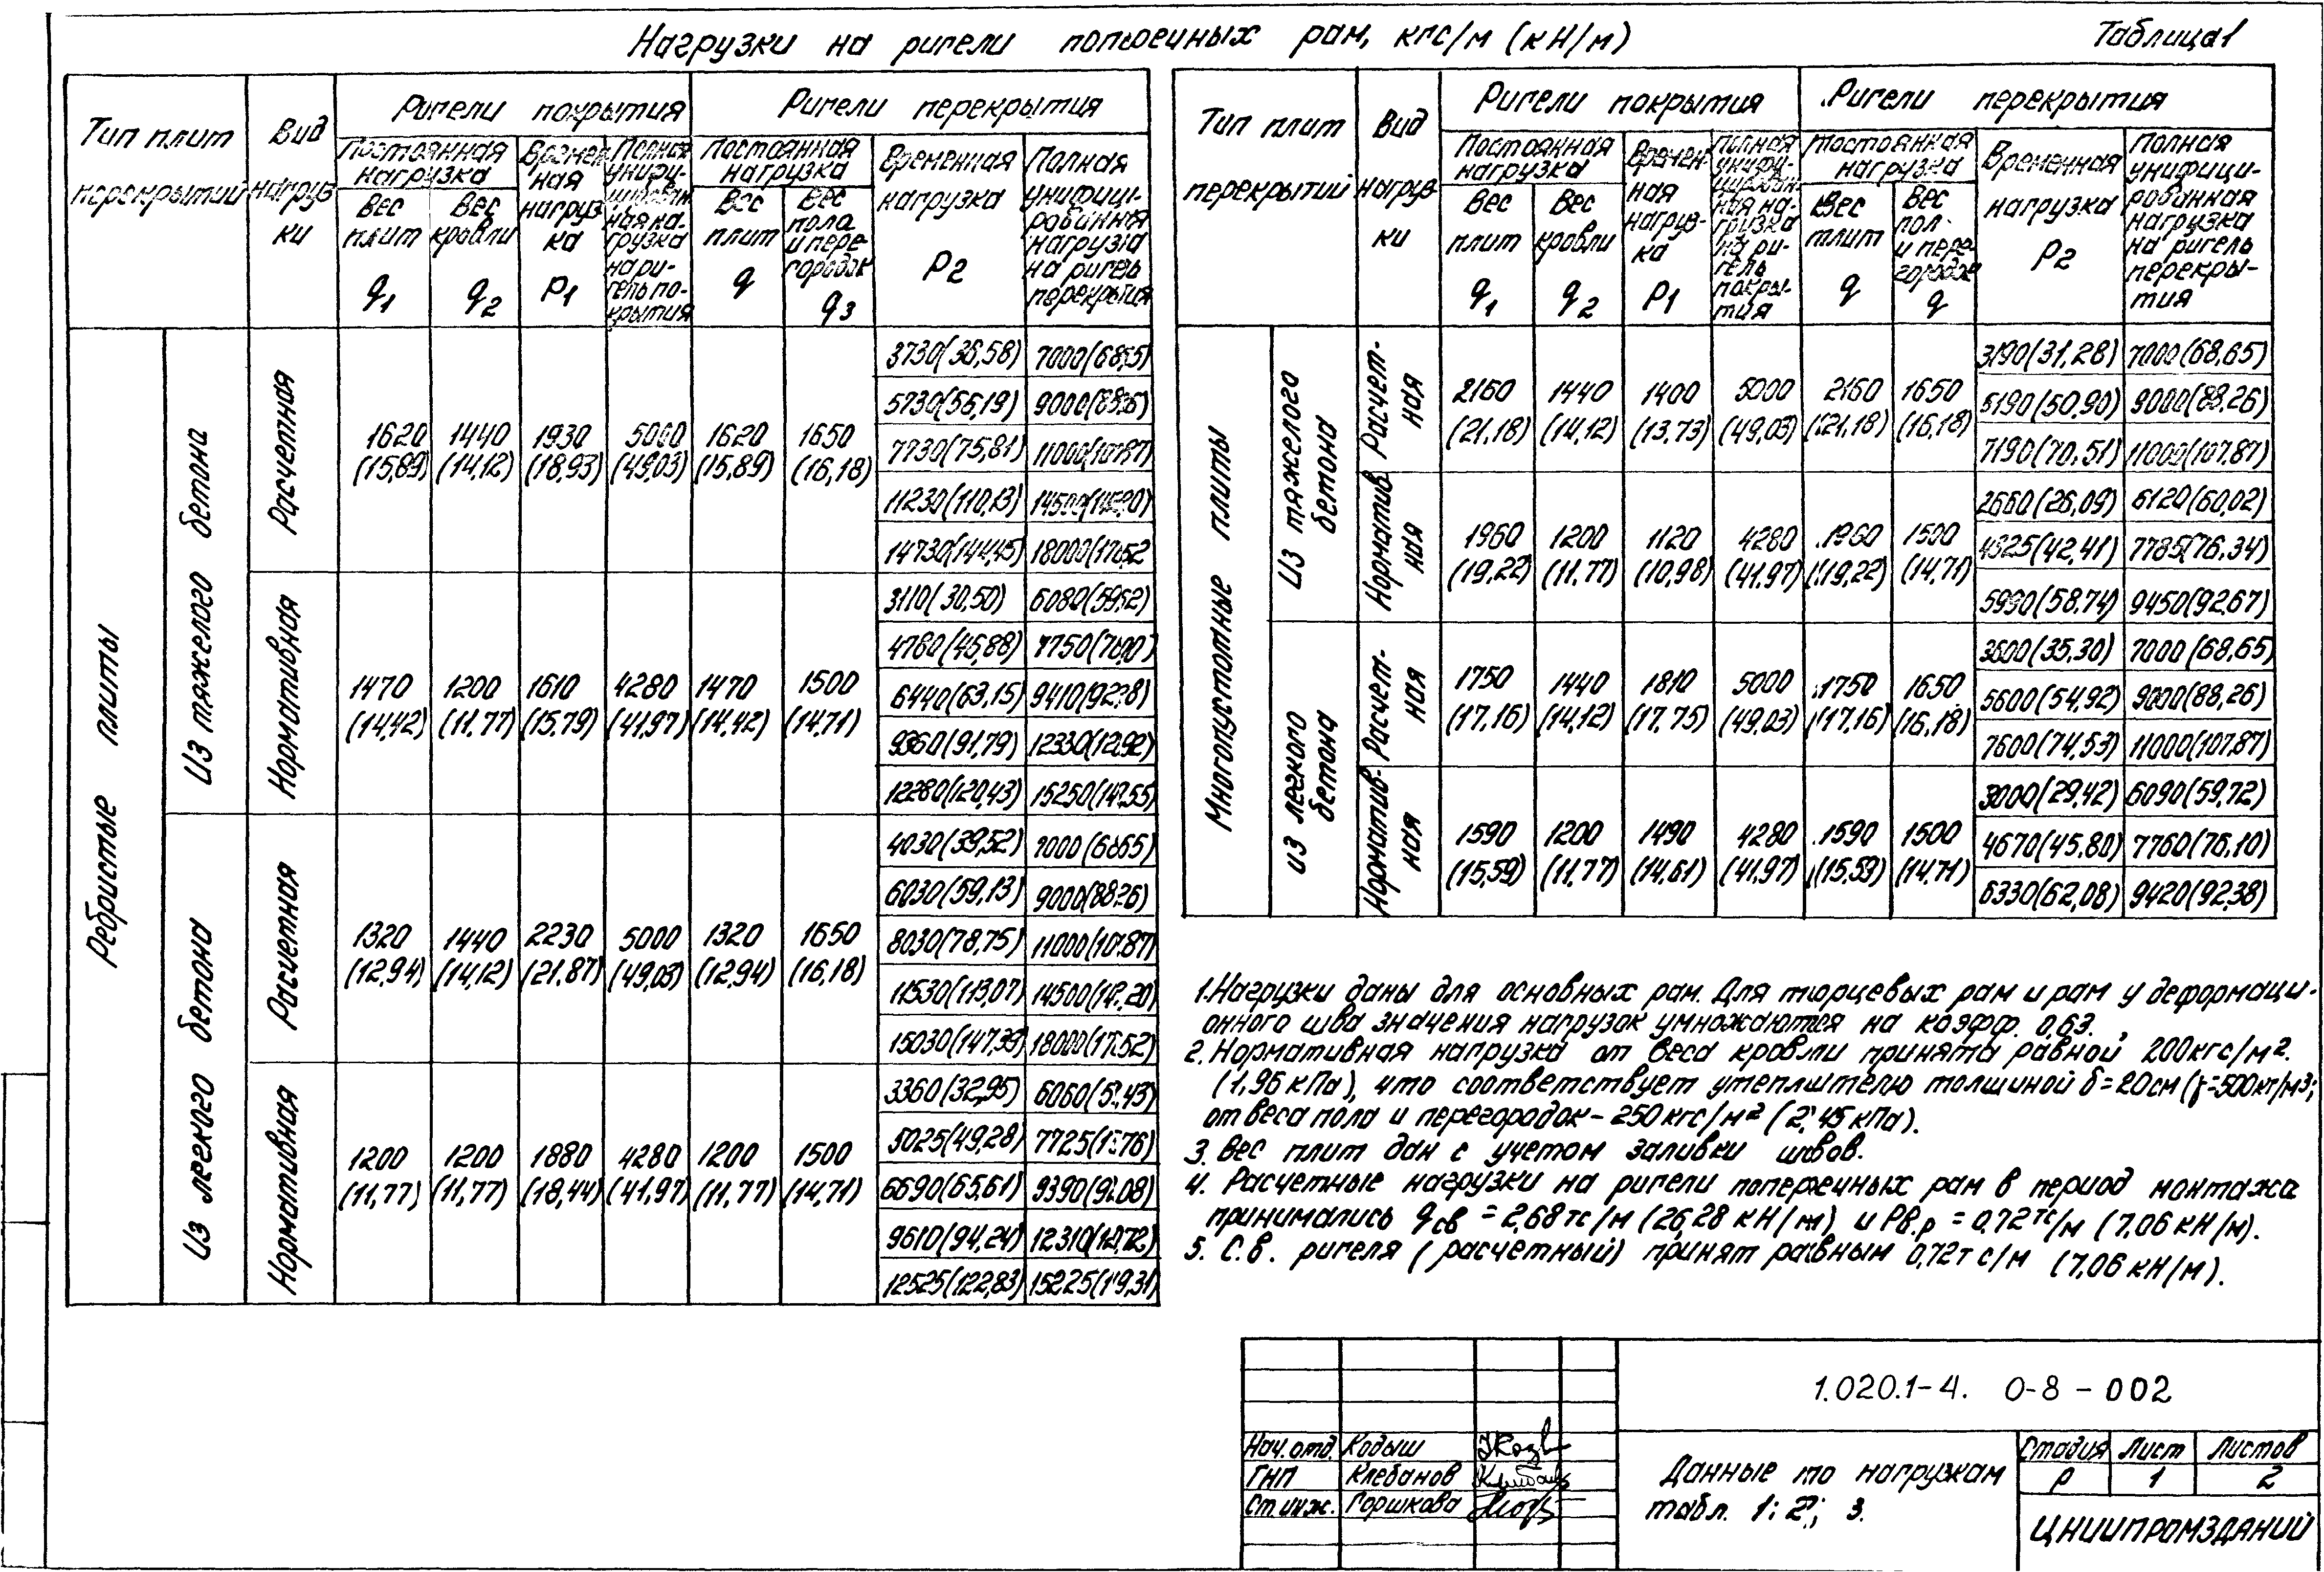 Нагрузки на ригели поперечных рам, кгс/м (кН/м)
Таблица 1
Тип плит перекрытий
Вид нагрузки
Ригели покрытия
Ригели перекрытия
Постоянная нагрузка
Вес плит q1
Вес кровли q2
Временная нагрузка P1
Полная унифицированная нагрузка на ригель покрытия
Постоянная нагрузка
Вес плит q
Вес пола и перегородок q3
Временная нагрузка P2
Полная унифицированная нагрузка на ригель перекрытия
Ребристые плиты
Из тяжелого бетона
Расчетная
1620 1440 1930 5000 1620 1650
(15,89) (14,12) (18,93) (49,03) (15,89) (16,18)
3730(36,58) 7000
5730(56,19) 9000
7730(75,81) 11000(107,87)
11230(110,13) 14500
14730(144,45) 18000
Нормативная
1470 1200 1610 4280 1470 1500
(14,42) (11,77) (15,79) (41,97) (14,42) (14,71)
3110(30,50) 6080
4780(45,88) 7750
6440(63,15) 9410
9360(91,79) 12330
12280(120,43) 15250
Из легкого бетона
Расчетная
1320 1440 2230 5000 1320 1650
(12,94) (14,12) (21,87) (49,03) (12,94) (16,18)
4030(39,52) 7000(68,65)
6030(59,13) 9000(88,26)
8030(78,75) 11000(107,87)
11530(113,07) 14500
15030(147,39) 18000
Нормативная
1200 1200 1880 4280 1200 1500
(11,77) (11,77) (18,44) (41,97) (11,77) (14,71)
3360(32,95) 6060
5025(49,28) 7725
6690(65,61) 9390
9610(94,24) 12310
12525(122,83) 15225
Тип плит перекрытий
Вид нагрузки
Ригели покрытия
Ригели перекрытия
Постоянная нагрузка
Вес плит q1
Вес кровли q2
Временная нагрузка P1
Полная унифицированная нагрузка на ригель покрытия
Постоянная нагрузка
Вес плит q
Вес пол. и перегородок q
Временная нагрузка P2
Полная унифицированная нагрузка на ригель перекрытия
Многопустотные плиты
Из тяжелого бетона
Расчетная
2160 1440 1400 5000 2160 1650
(21,18) (14,12) (13,73) (49,03) (21,18) (16,18)
3190(31,28) 7000(68,65)
5190(50,90) 9000(88,26)
7190(70,51) 11000(107,87)
Нормативная
1960 1200 1120 4280 1960 1500
(19,22) (11,77) (10,98) (41,97) (19,22) (14,71)
2660(26,09) 6120(60,02)
4325(42,41) 7785(76,34)
5990(58,74) 9450(92,67)
из легкого бетона
Расчетная
1750 1440 1810 5000 1750 1650
(17,16) (14,12) (17,75) (49,03) (17,16) (16,18)
3600(35,30) 7000(68,65)
5600(54,92) 9000(88,26)
7600(74,53) 11000(107,87)
Нормативная
1590 1200 1490 4280 1590 1500
(15,59) (11,77) (14,61) (41,97) (15,59) (14,71)
3000(29,42) 6090(59,72)
4670(45,80) 7760(76,10)
6330(62,08) 9420(92,38)
1. Нагрузки даны для основных рам. Для торцевых рам и рам у деформаци-
онного шва значения нагрузок умножаются на коэфф. 0,63.
2. Нормативная нагрузка от веса кровли принята равной 200кгс/м²
(1,96 кПа), что соответствует утеплителю толщиной δ=20см (γ=500кг/м³;
от веса пола и перегородок - 250 кгс/м² (2,45 кПа).
3. Вес плит дан с учетом заливки швов.
4. Расчетные нагрузки на ригели поперечных рам в период монтажа
принимались qсв = 2,68 тс/м (26,28 кН/м) и Рв.р = 0,72 тс/м (7,06 кН/м).
5. С.в. ригеля (расчетный) принят равным 0,72т с/м (7,06 кН/м).
1.020.1-4. 0-8-002
Нач.отд. Кодыш
ГИП Клебанов
Ст.инж. Горшкова
Данные по нагрузкам
табл. 1; 2; 3.
Стадия Лист Листов
Р 1 2
ЦНИИПРОМЗДАНИЙ